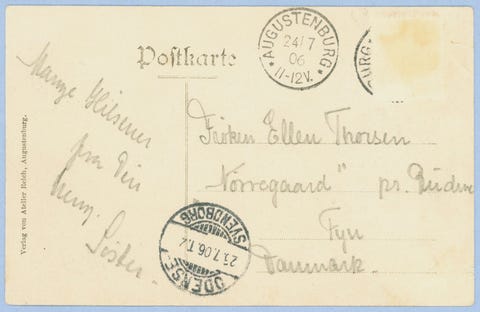 Postkarte
AUGUSTENBURG
24/7
06
11-12V.
BURG
Mange Hilsener
fra Din
Søster.
Frøken Ellen Thorsen
"Nørregaard" pr.
Fyn
Danmark.
ODENSE
23.7.06.
SVENDBORG
Verlag von Atelier Reich, Augustenburg.